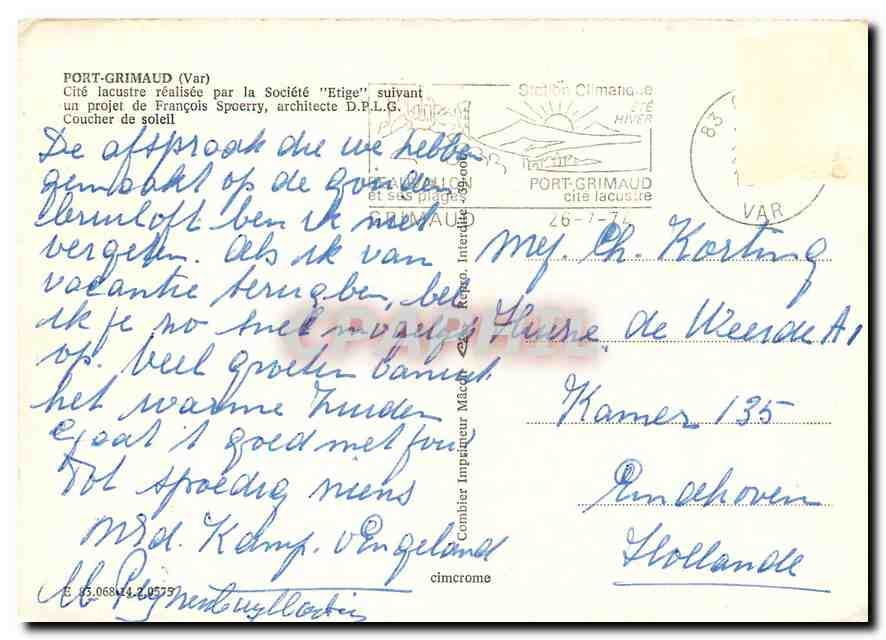 PORT-GRIMAUD (Var)
Cité lacustre réalisée par la Société "Etige" suivant
un projet de François Spoerry, architecte D.P.L.G.
Coucher de soleil
De afspraak die we hebben
gemaakt op de gouden
bruiloft ben ik niet
vergeten. Als ik van
vacantie terug ben, bel
ik je zo snel mogelijk
op. Veel groeten vanuit
het warme zuiden
Gaat 't goed met jou
Tot spoedig ziens
Mej. Ch. Korting
Huize de Weerde A1
Kamer 135
Eindhoven
Hollande
Station Climatique
ÉTÉ
HIVER
BEAUVALLON
et ses plages
PORT-GRIMAUD
cité lacustre
GRIMAUD
26-7-74
83
VAR
Combier Imprimeur Mâcon
Repro. Interdite
cimcrome
E 83.068.14.2.0575
CPAPHIL